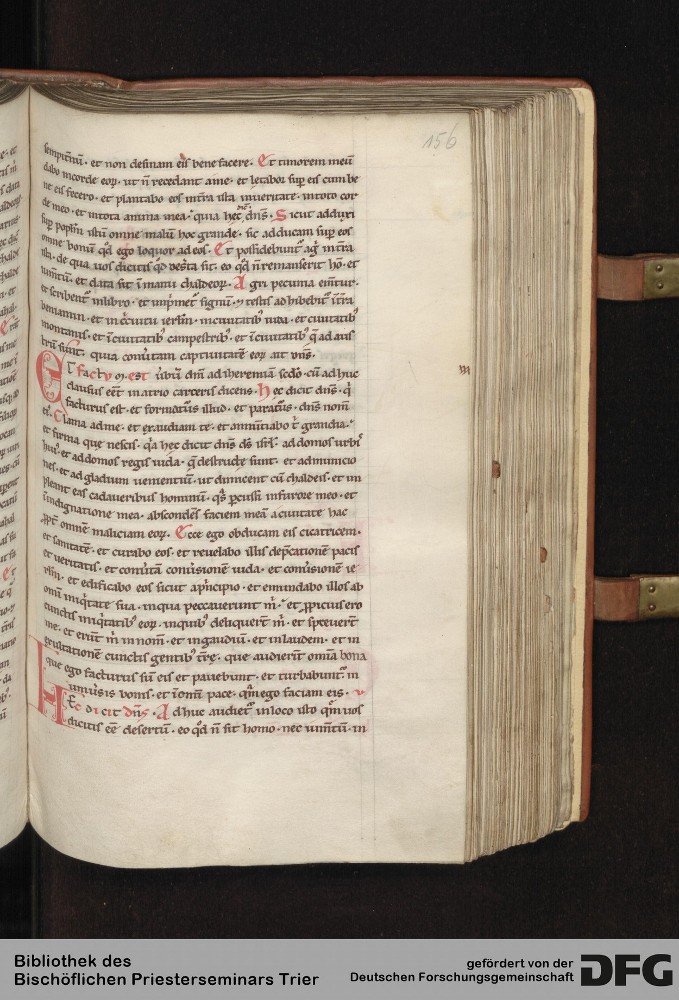 156
sempit̄nū · et non desinam eis bene facere · Et timorem meū
dabo in corde eoꝝ · ut n̄ recedant a me · et letabor suꝑ eis cum be
ne eis fecero · et plantabo eos in t̄ra ista in ueritate · in toto cor
de meo · et in tota anima mea · quia hec dic̄ dn̄s · Sicut adduxi
suꝑ popl̄m istū omne malū hoc grande · sic adducam suꝑ eos
omne bonū qd̄ ego loquor ad eos · Et possidebunt̄ agri in t̄ra
ista · de qua uos dicitis qd̄ des̄ta sit · eo qd̄ n̄ remanserit hō · et
iumt̄ū · et data sit ī manu chaldeoꝝ · Agri pecunia emt̄ur ·
et scribent̄ in libro · et imp̄met̄ signū · ⁊ testis adhibebit̄ ī t̄ra
beniamin · et in circuitu ierl̄m · in ciuitatib; iuda · et ciuitatib;
montanis · et ī ciuitatib; campestrib; · et ī ciuitatib; que ad aus
trū sunt · quia conūtam captiuitatē eoꝝ ait dn̄s ·
Et factū est ūbū dn̄i ad iheremiam sc̄do · cū adhuc
clausus eēt in atrio carceris dicens · Hec dicit dn̄s · qi
facturus est · et formaturus illud · et paraturus · dn̄s nom̄
ei᷒ · Clama ad me · et exaudiam te · et annūtiabo t̄ grandia ·
et firma que nescis · qa hec dicit dn̄s ds̄ isrl̄ · ad domos urbis
hui᷒ · et ad domos regis iuda · q̄ destructe sunt · et ad munitio
nes · et ad gladium uenientiū · ut dimicent cū chaldeis · et im
pleant eas cadaueribus hominū · qs̄ ꝑcussi in furore meo · et
ī indignatione mea · abscondēs faciem meā a ciuitate hac
ꝓpt̄ omnē maliciam eoꝝ · Ecce ego obducam eis cicatricem ·
et sanitatē · et curabo eos · et reuelabo illis dep̄cationē pacis
et ueritatis · et conūtā conūsionē iuda · et conūsionē ie
rl̄m · et edificabo eos sicut a p̄ncipio · et emundabo illos ab
omī iniqtate sua · in qua peccauerunt m̄ · et ꝓpicius ero
cunctis iniqtatib; eoꝝ · in quib; deliquer̄t m̄ · et spreuer̄t
me · et er̄t m̄ in nom̄ · et in gaudiū · et in laudem · et in
exultationē cunctis gentib; t̄rę · que audier̄t omnia bona
que ego facturus sū eis et pauebunt · et turbabunt̄ in
uniūsis bonis · et ī omī pace · qm̄ ego faciam eis · v
Hec dicit dn̄s · Adhuc audiet̄ in loco isto qm̄ uos
dicitis eē desertū · eo qd̄ n̄ sit homo · nec iumt̄ū · in
Bibliothek des
Bischöflichen Priesterseminars Trier
gefördert von der
Deutschen Forschungsgemeinschaft
DFG